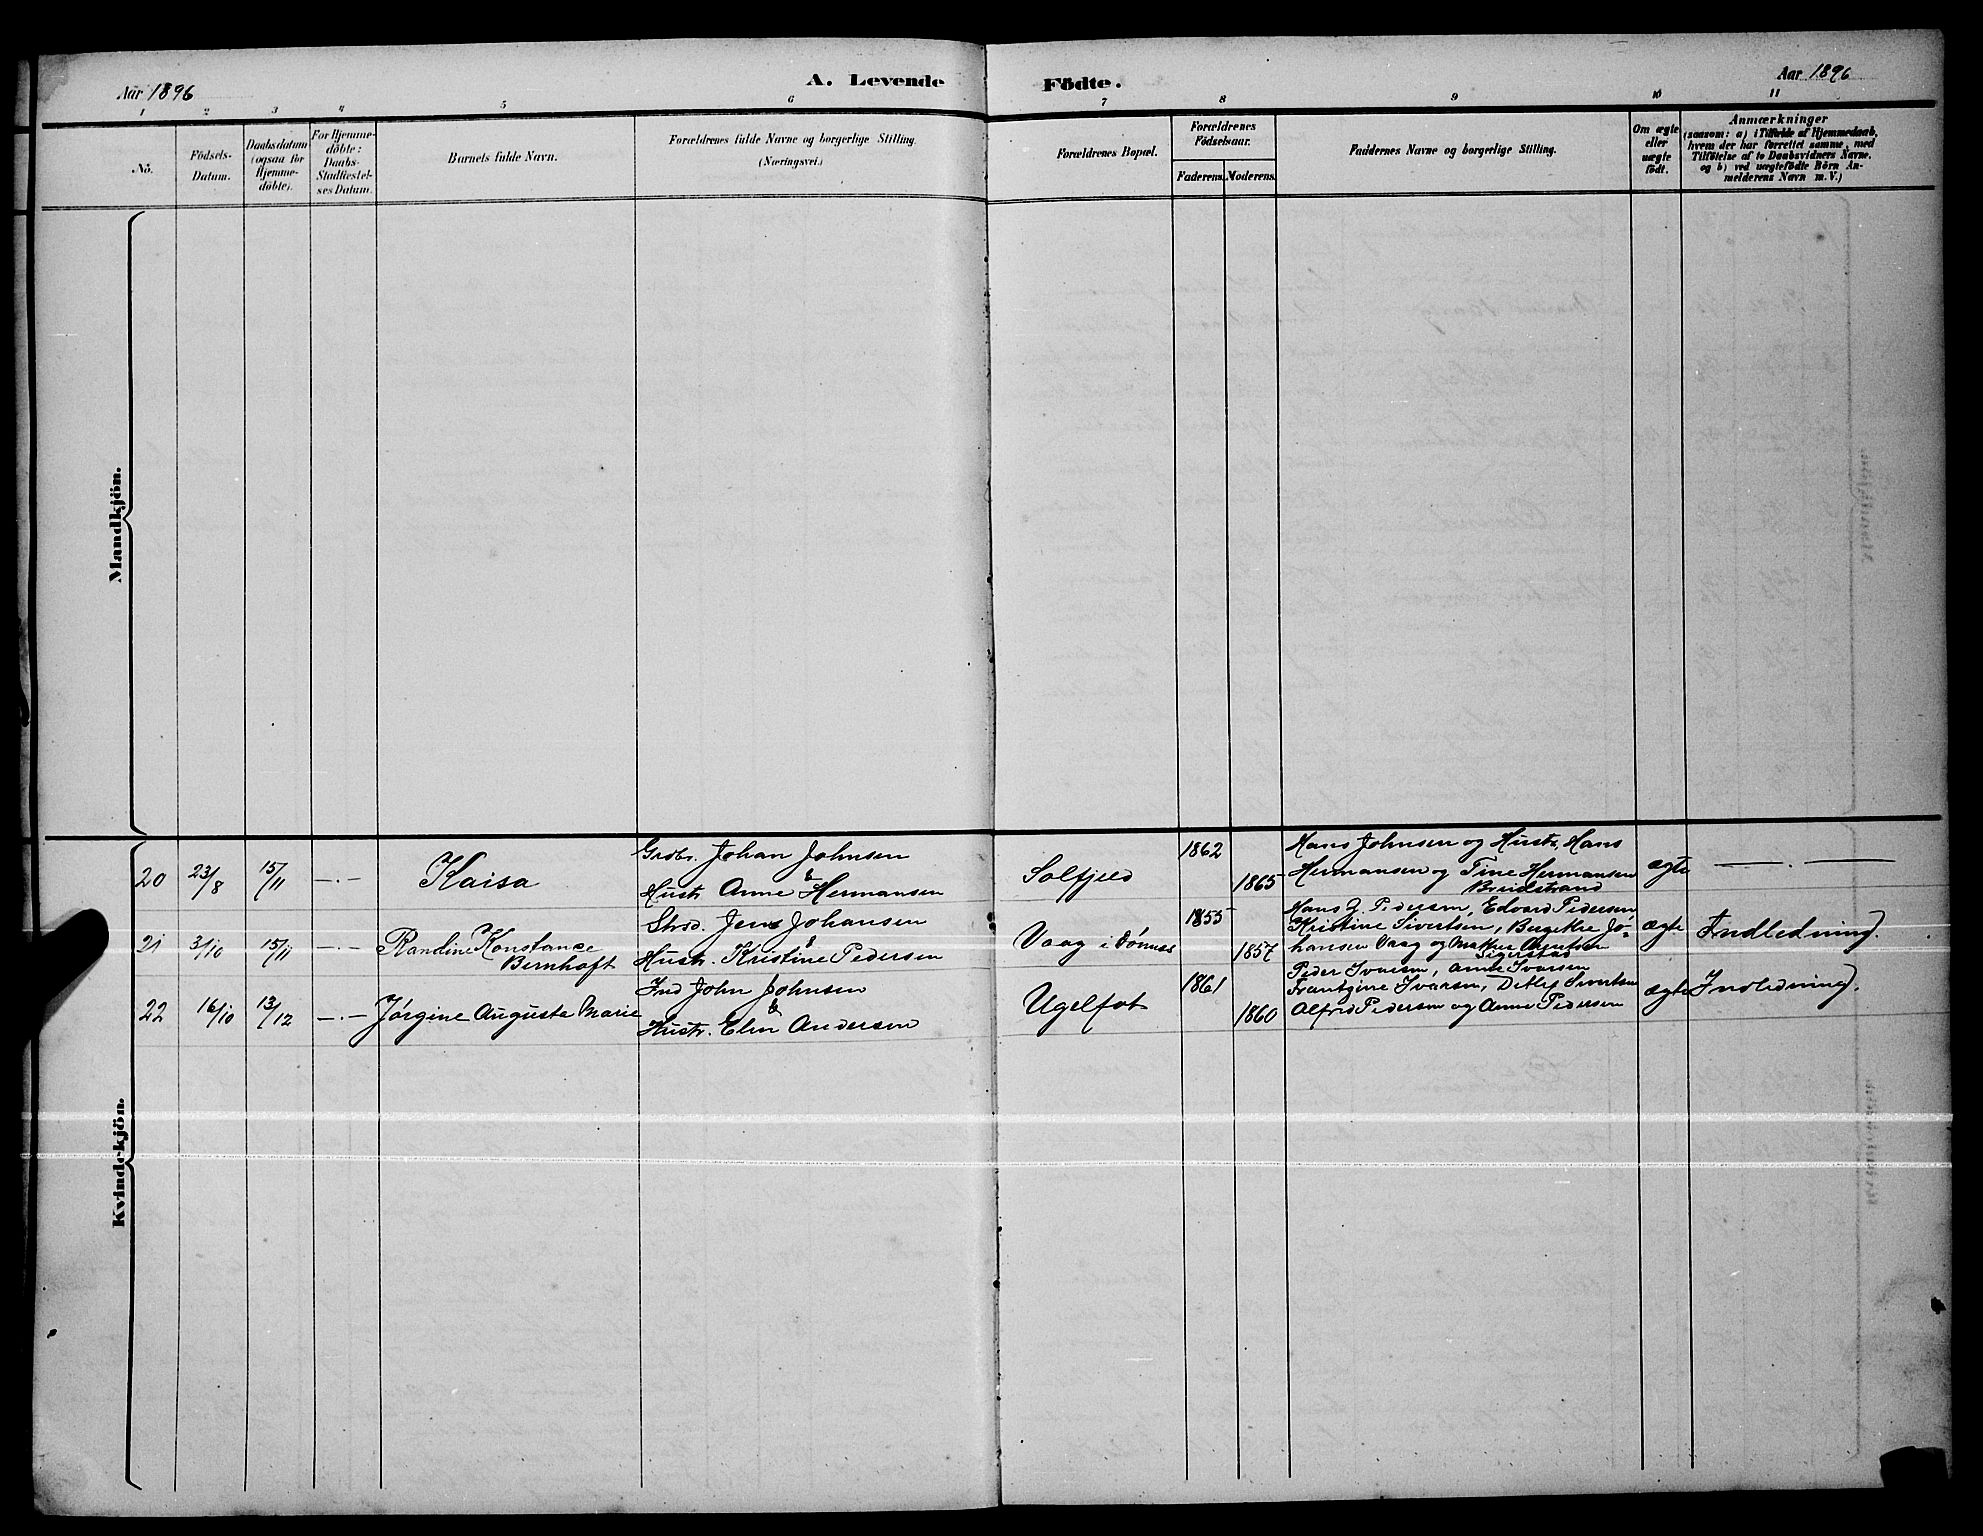 Aar 1896
A. Levende Födte.
Aar 1896
1 2 3 4 5 6 7 8 9 10 11
No.
Födsels-
Datum.
Daabsdatum
(ogsaa for
Hjemme-
döbte).
For Hjemme-
döbte:
Daabs-
Stadfestel-
ses Datum.
Barnets fulde Navn.
Forældrenes fulde Navne og borgerlige Stilling.
(Næringsvei.)
Forældrenes Bopæl.
Forældrenes
Födselsaar.
Faderens. Moderens.
Faddernes Navne og borgerlige Stilling.
Om ægte
eller
uægte
födt.
Anmærkninger
(saasom: a) i Tilfælde af Hjemmedaab,
hvem der har forrettet samme, med
Tilföielse af to Daabsvidners Navne,
og b) ved uægtefödte Börn An-
melderens Navn m. V.)
Mandkjön.
Kvindekjön.
20 23/8 15/11 —·— Kaisa
Grdbr. Johan Johnsen
&
Hustr. Anne Hermansen
Solfjeld
1862
1865
Hans Johnsen og Hustr, Hans
Hermansen og Tine Hermansen
Breidstrand
ægte — . —
21 3/10 15/11 Randine Konstance
Bernhoft
Strd. Jens Johansen
&
Hustr. Kristine Pedersen
Vaag i Dönnes
1855
1857
Hans J. Pedersen, Edvard Pedersen,
Kristine Sivertsen, Bergitte Jo-
hansen Vaag og
Sigerstad
ægte Indledning.
22 16/10 13/12 —·— Jørgine Auguste Marie
Ind John Johnsen
&
Hustr. Elen Andersen
Ugelfot
1861
1860
Peder Ivarsen, Anne Ivarsen
Frantzine Ivarsen, Detlef Sivertsen
Alfred Pedersen og Anne Pedersen
ægte Indledning.